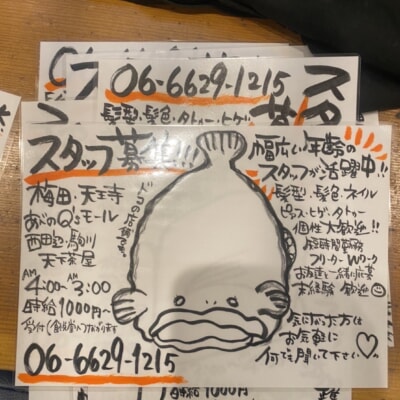 06-6629-1215
髪型・髪色・タトゥー・ヒゲ
スタッフ募集!!
梅田・天王寺
あべのQ'sモール
西田辺・駒川
天下茶屋
AM 4:00~AM 3:00
時給1000円~
06-6629-1215
幅広い年齢の
スタッフが活躍中!!
髪型・髪色・ネイル
ピアス・ヒゲ・タトゥー
個性大歓迎!!
短時間勤務
フリーター Wワーク
お友達と一緒に応募
未経験 歓迎
気になった方は
お気軽に
何でも聞いて下さい♡
時給1000円